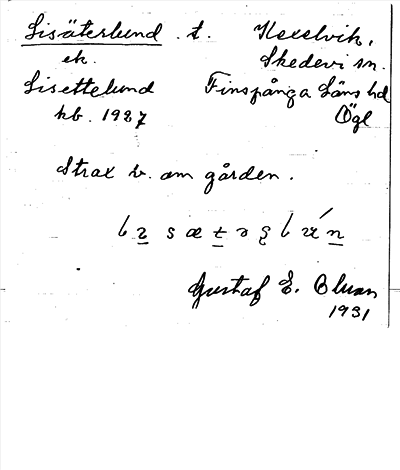 Lisäterlund . t. Hexelvik,
ek. Skedevi sn.
Lisettelund Finspånga Läns hd
kb. 1927 Ögl
Strax v. om gården.
Gustaf E. Bluan
1931